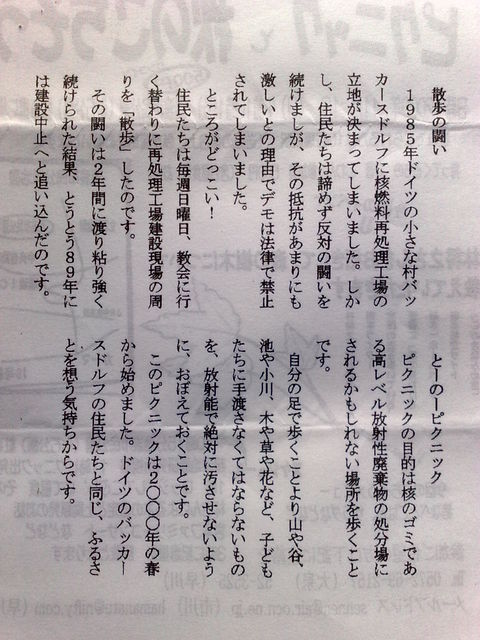 散歩の闘い
１９８５年ドイツの小さな村バッ
カースドルフに核燃料再処理工場の
立地が決まってしまいました。しか
し、住民たちは諦めず反対の闘いを
続けましが、その抵抗があまりにも
激しいとの理由でデモは法律で禁止
されてしまいました。
ところがどっこい！
住民たちは毎週日曜日、教会に行
く替わりに再処理工場建設現場の周
りを「散歩」したのです。
その闘いは２年間に渡り粘り強く
続けられた結果、とうとう８９年に
は建設中止へと追い込んだのです。
とーのーピクニック
ピクニックの目的は核のゴミであ
る高レベル放射性廃棄物の処分場に
されるかもしれない場所を歩くこと
です。
自分の足で歩くことより山や谷、
池や小川、木や草や花など、子ども
たちに手渡さなくてはならないもの
を、放射能で絶対に汚させないよう
に、おぼえておくことです。
このピクニックは２０００年の春
から始めました。ドイツのバッカー
スドルフの住民たちと同じ、ふるさ
とを想う気持ちからです。